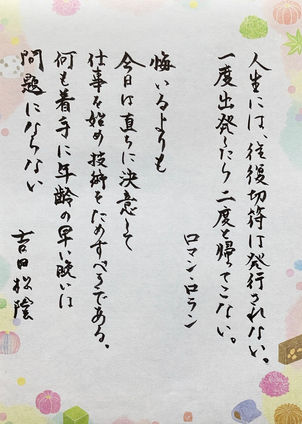 人生には、往復切符は発行されない。
一度出発したら二度と帰ってこない。
ロマン・ロラン
悔いるよりも
今日は直ちに決意して
仕事を始め技術をためすべきである。
何も着手に年齢の早い晩いは
問題にならない
吉田松陰